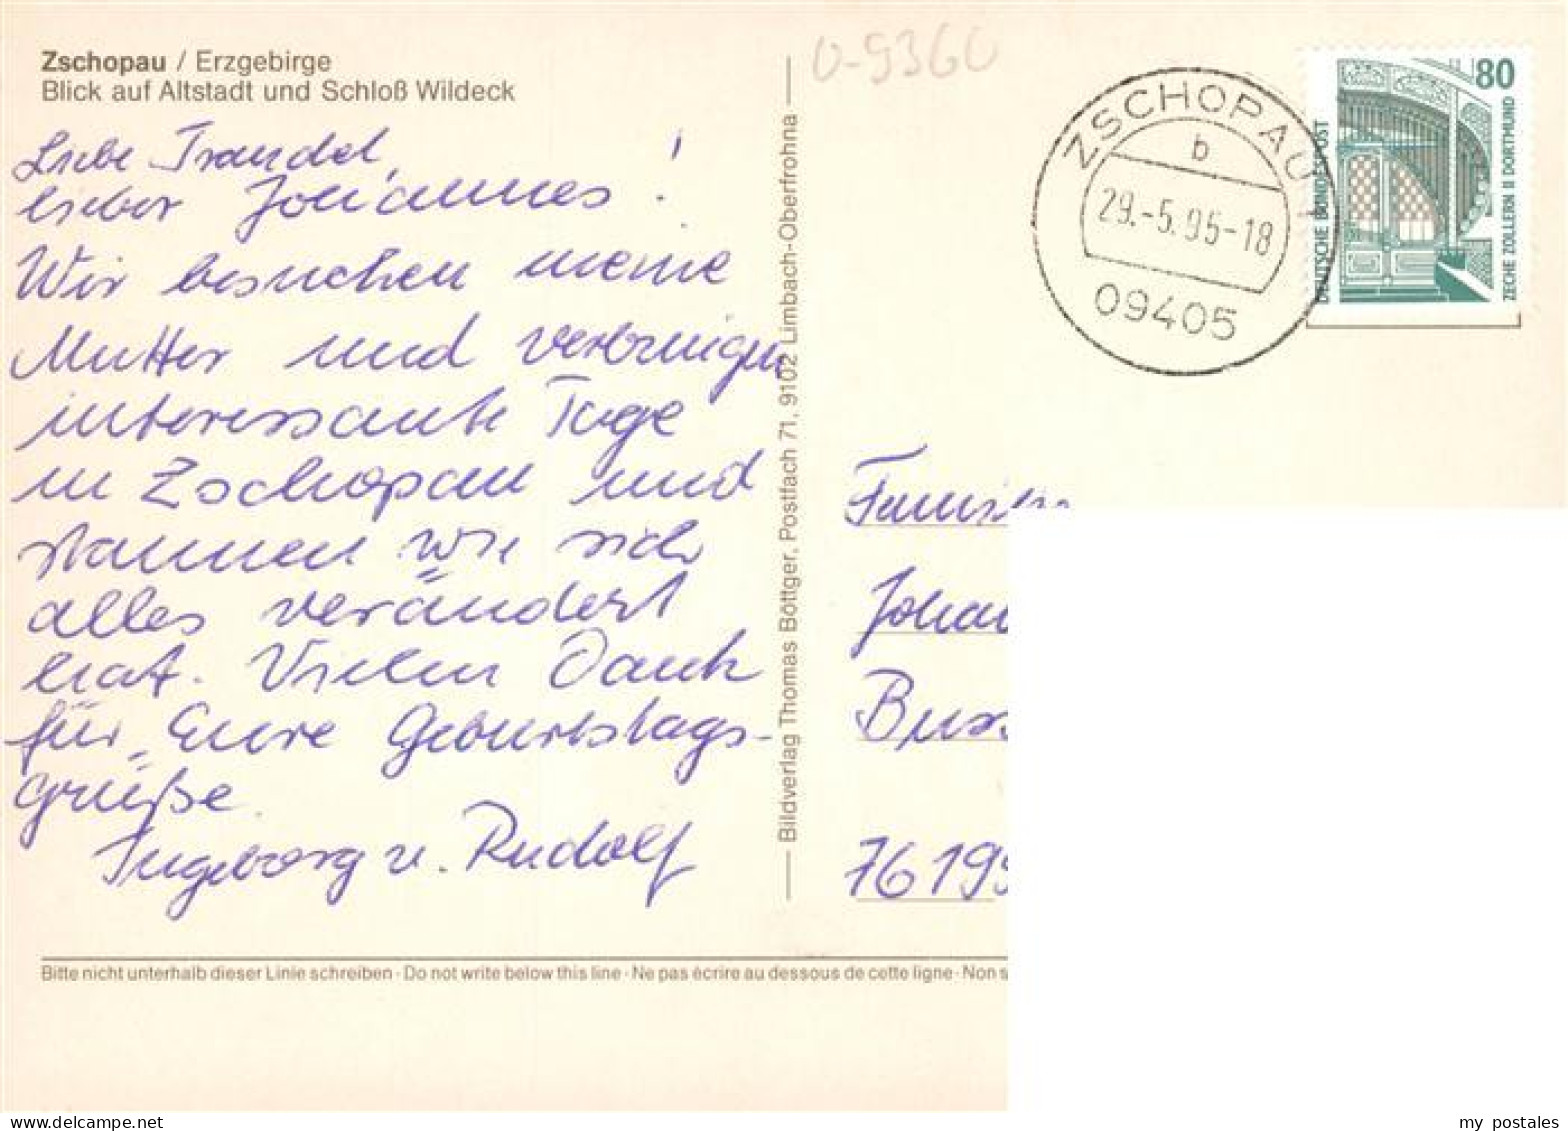 Zschopau / Erzgebirge
Blick auf Altstadt und Schloß Wildeck
Liebe Traudel,
lieber Johannes!
Wir besuchen meine
Mutter und verbringen
interessante Tage
in Zschopau und
staunen wie sich
alles verändert
hat. Vielen Dank
für Eure Geburtstags-
grüße.
Ingeborg u. Rudolf
Bildverlag Thomas Böttger, Postfach 71, 9102 Limbach-Oberfrohna
0-9360
ZSCHOPAU 1
b
29.-5.95-18
09405
80
DEUTSCHE BUNDESPOST
ZECHE ZOLLERN II DORTMUND
Familie
Johan
76199
Bitte nicht unterhalb dieser Linie schreiben · Do not write below this line · Ne pas écrire au dessous de cette ligne · Non s
my postales